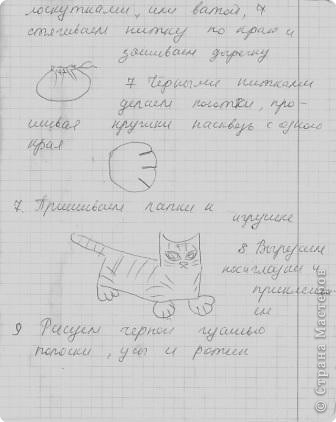 лоскутками, или ватой, и
стягиваем нитку по краю и
зашиваем дырочку
7 Чёрными нитками
делаем ноготки, про-
шивая кружки насквозь с одного
края
7. Пришиваем лапки к
игрушке
8 Вырезаем
нос и глазки и
приклеиваем
9 Рисуем черной гуашью
полоски, усы и ротик
© Страна Мастеров